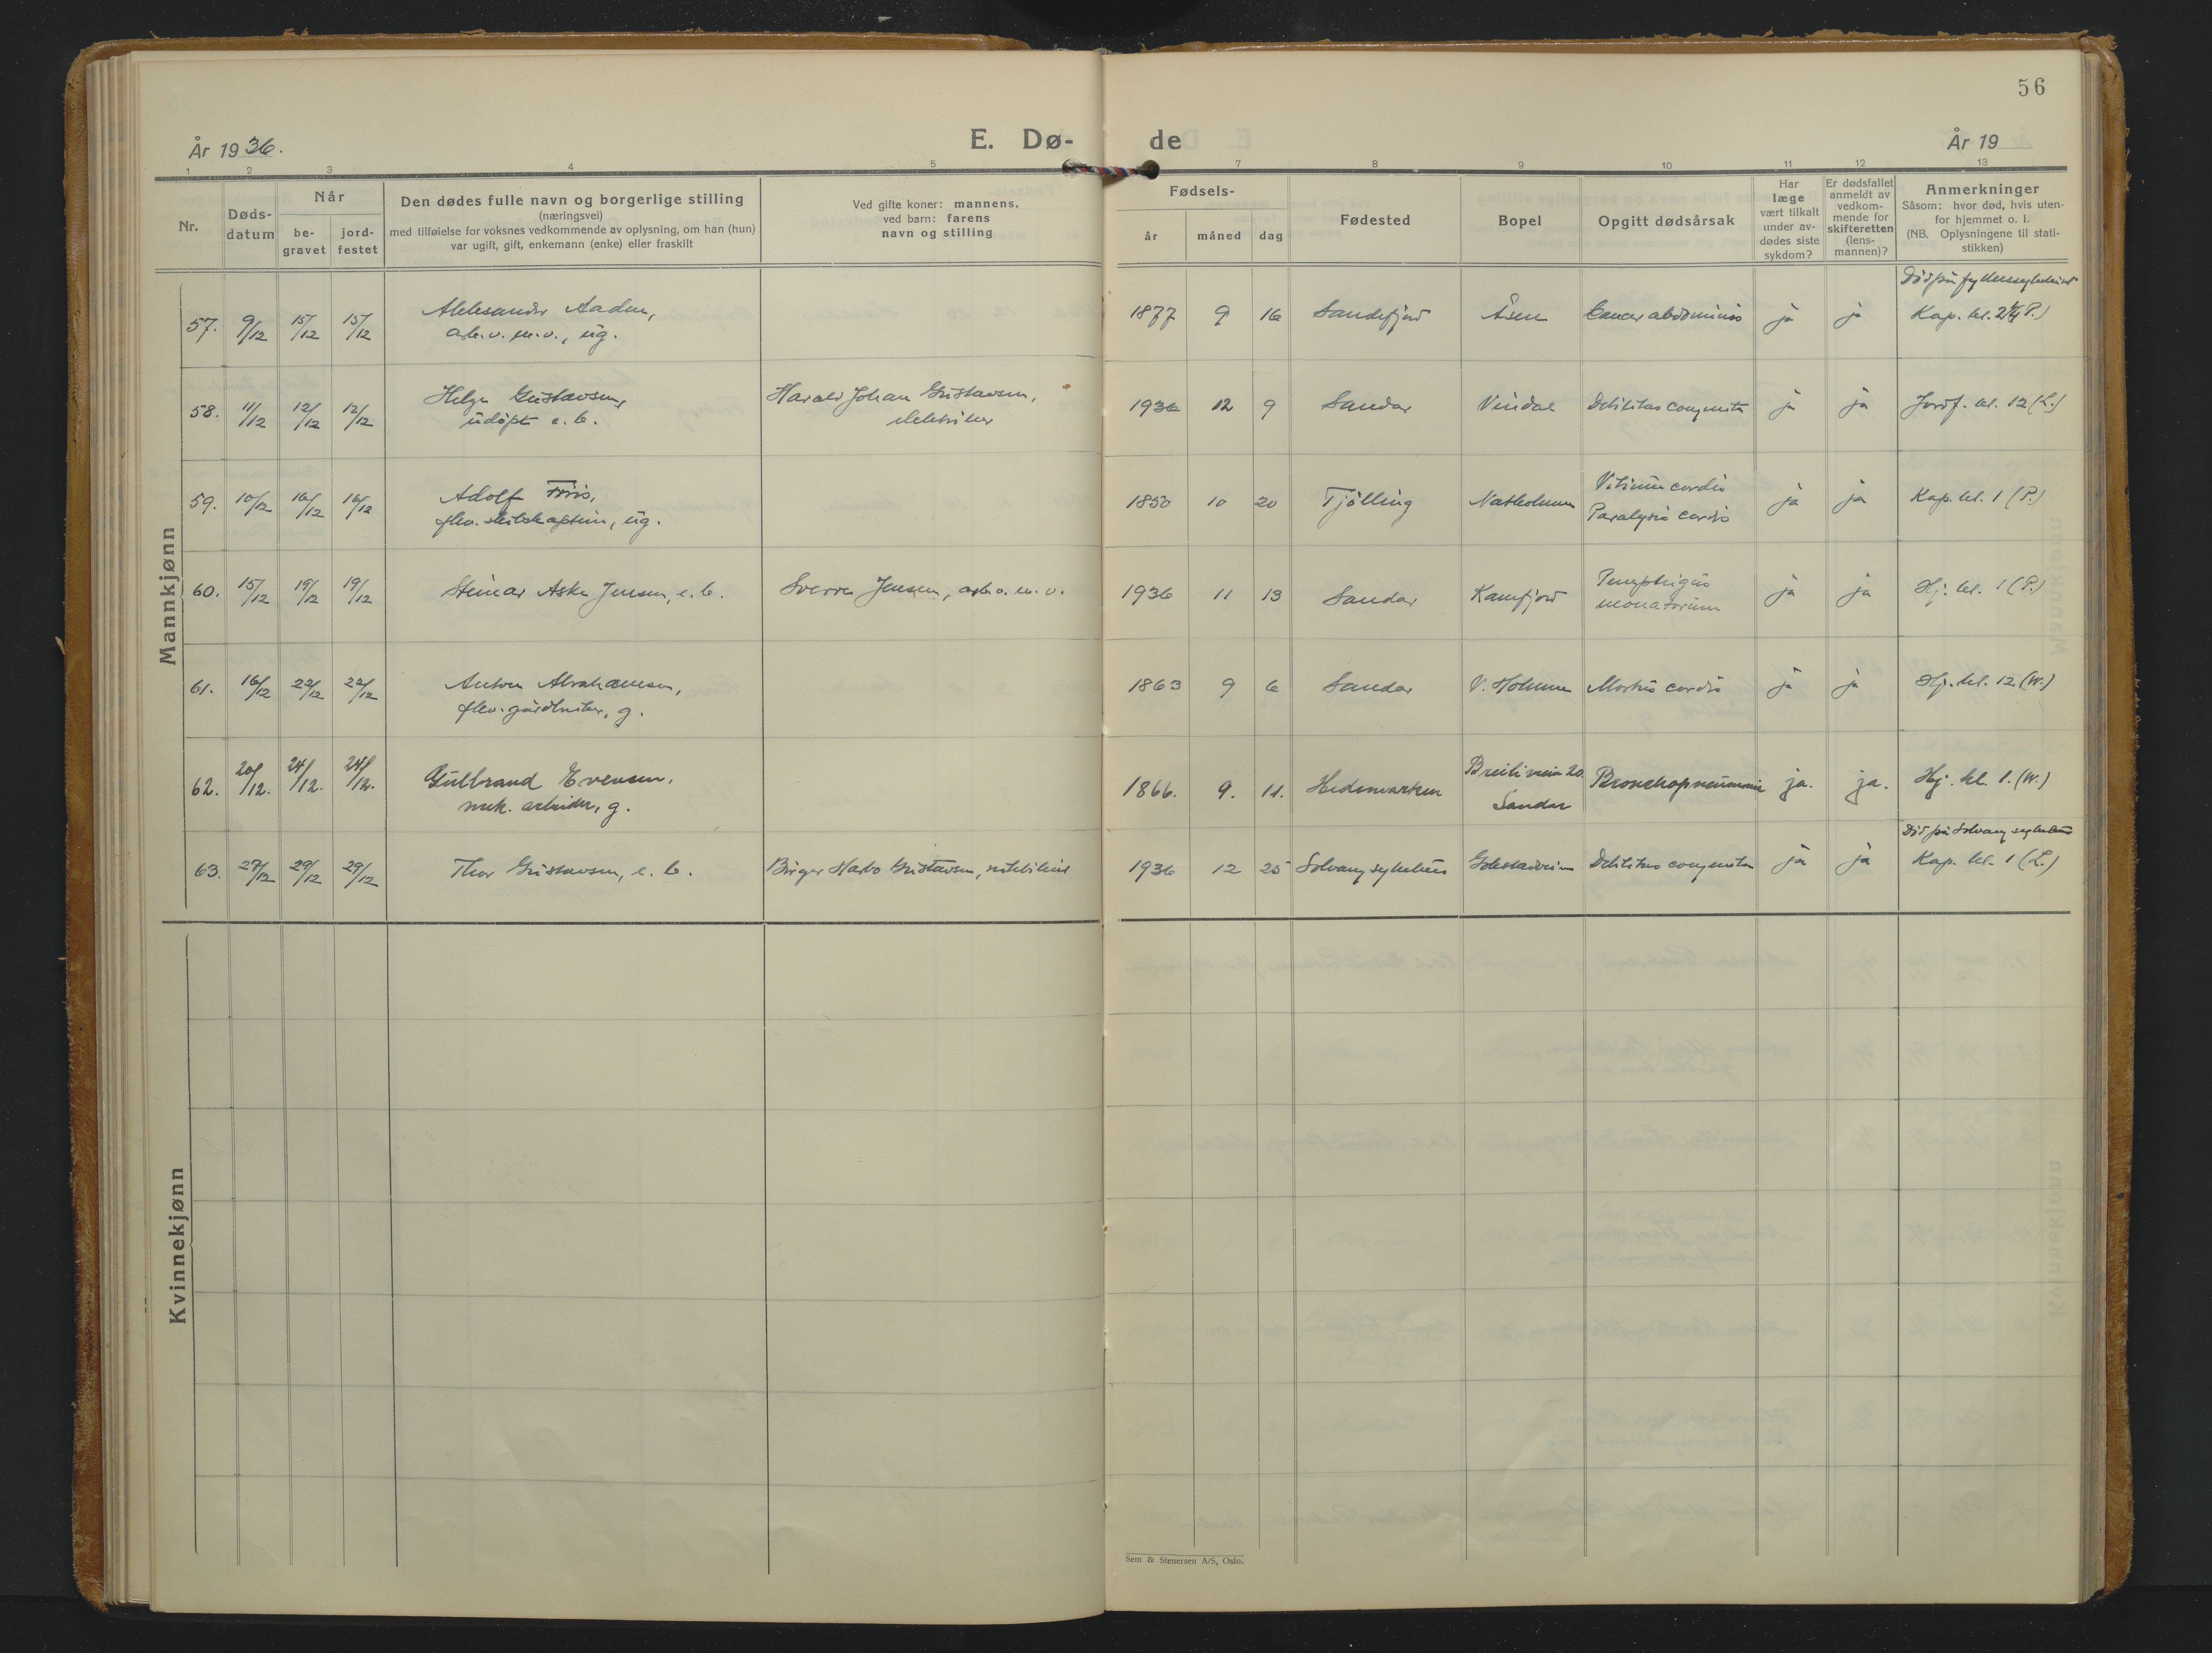 56
År 1936.
E. Dø-
de
År 19
1 2 3 4 5 7 8 9 10 11 12 13
Nr.
Døds-
datum
Når
be-
gravet
jord-
festet
Den dødes fulle navn og borgerlige stilling
(næringsvei)
med tilføielse for voksnes vedkommende av oplysning, om han (hun)
var ugift, gift, enkemann (enke) eller fraskilt
Ved gifte koner: mannens,
ved barn: farens
navn og stilling
Fødsels-
år måned dag
Fødested
Bopel
Opgitt dødsårsak
Har
læge
vært tilkalt
under av-
dødes siste
sykdom?
Er dødsfallet
anmeldt av
vedkom-
mende for
skifteretten
(lens-
mannen)?
Anmerkninger
Såsom: hvor død, hvis uten-
for hjemmet o. l.
(NB. Oplysningene til stati-
stikken)
Mannkjønn
Død på
57. 9/12 15/12 15/12 Aleksander 1877 9 16 Sandefjord Åsen Cancer abdominis ja ja Kap. kl.
arb. v. m.v., ug.
58. 11/12 12/12 12/12 Helge Gustavsen, Harald Johan Gustavsen, 1936 12 9 Sandar Vindal Debilitas congenita ja ja Jordf. kl. 12 (L.)
udøpt e. b. elektriker
59. 10/12 16/12 16/12 Adolf Friis, 1850 10 20 Tjølling Natholmen Vitium cordis ja ja Kap. kl. 1 (P.)
fhv. skibskaptein, ug. Paralysis cordis
60. 15/12 19/12 19/12 Steinar Aske Jensen, e. b. Sverre Jensen, arb. v. m. v. 1936 11 13 Sandar Kamfjord Pemphigus ja ja Hj. kl. 1 (P.)
61. 16/12 22/12 22/12 Anton Abrahamsen, 1863 9 6 Sandar V. Holmen Morbus cordis ja ja Hj. kl. 12 (W.)
fhv. gårdbruker, g.
62. 20/12. 24/12. 24/12. Gulbrand Evensen, 1866. 9. 11. Hedemarken Breiliveien 20 Bronchopneumoni ja. ja. Hj. kl. 1. (W.)
mek. arbeider, g. Sandar
Død på Solvang sykehus
63. 27/12 29/12 29/12 Thor Gustavsen, e. b. Birger Harbo Gustavsen, 1936 12 25 Solvang sykehus Debilitas congenita ja ja Kap. kl. 1 (L.)
Kvinnekjønn
Sem & Stenersen A/S, Oslo.